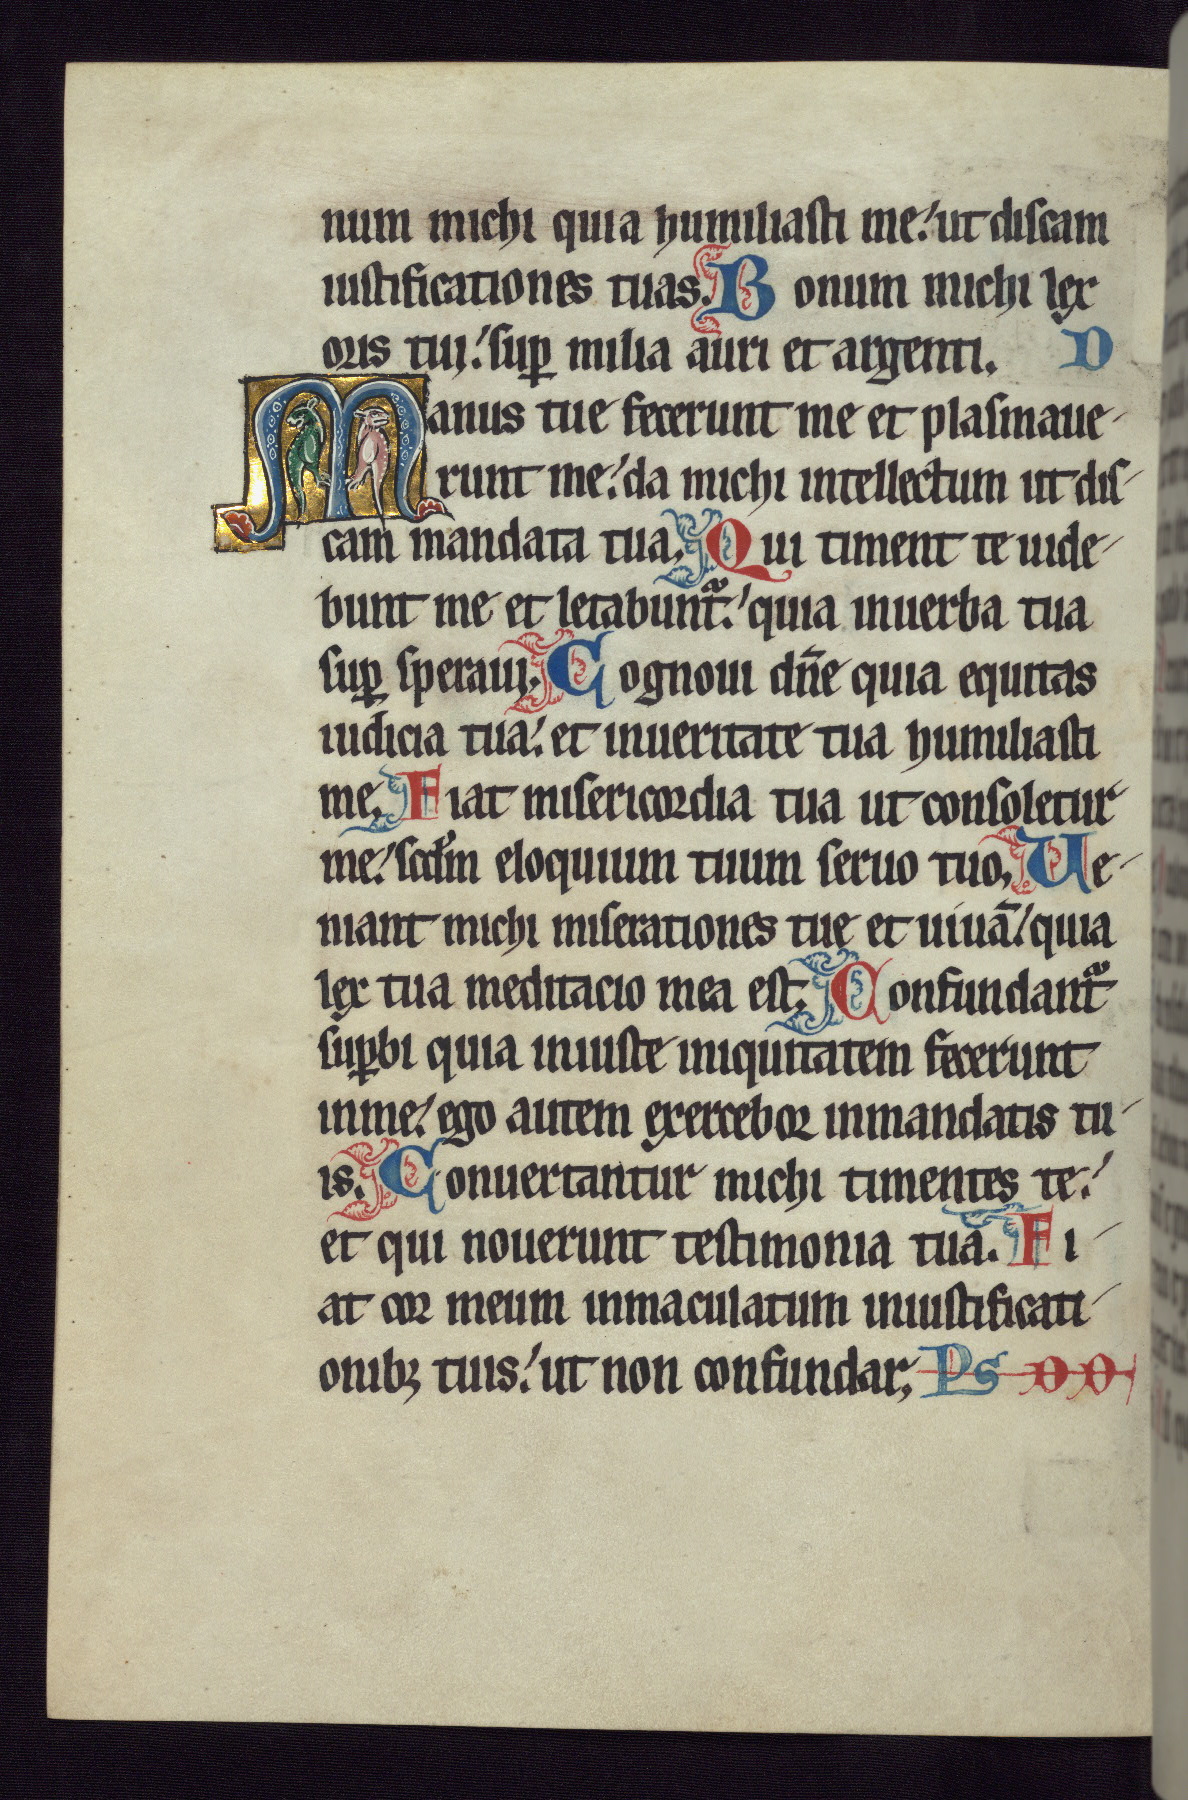 num michi quia humiliasti me. ut discam
iustificationes tuas. Bonum michi lex
oris tui. sup̱ milia auri et argenti. D
Manus tue fecerunt me et plasmaue-
runt me. da michi intellectum ut dis-
cam mandata tua. Qui timent te uide-
bunt me et letabunt᷑. quia inuerba tua
sup̱ speraui. Cognoui dn̄e quia equitas
iudicia tua. et inueritate tua humiliasti
me. Fiat misericordia tua ut consoletur
me. scd̄m eloquium tuum seruo tuo. Ue-
niant michi miserationes tue et uiuā. quia
lex tua meditacio mea est. Confundant᷑
sup̱bi quia iniuste iniquitatem fecerunt
inme. ego autem exercebor inmandatis tu-
is. Conuertantur michi timentes te.
et qui nouerunt testimonia tua. Fi-
at cor meum inmaculatum iniustificati-
onibꝫ tuis. ut non confundar. Ps